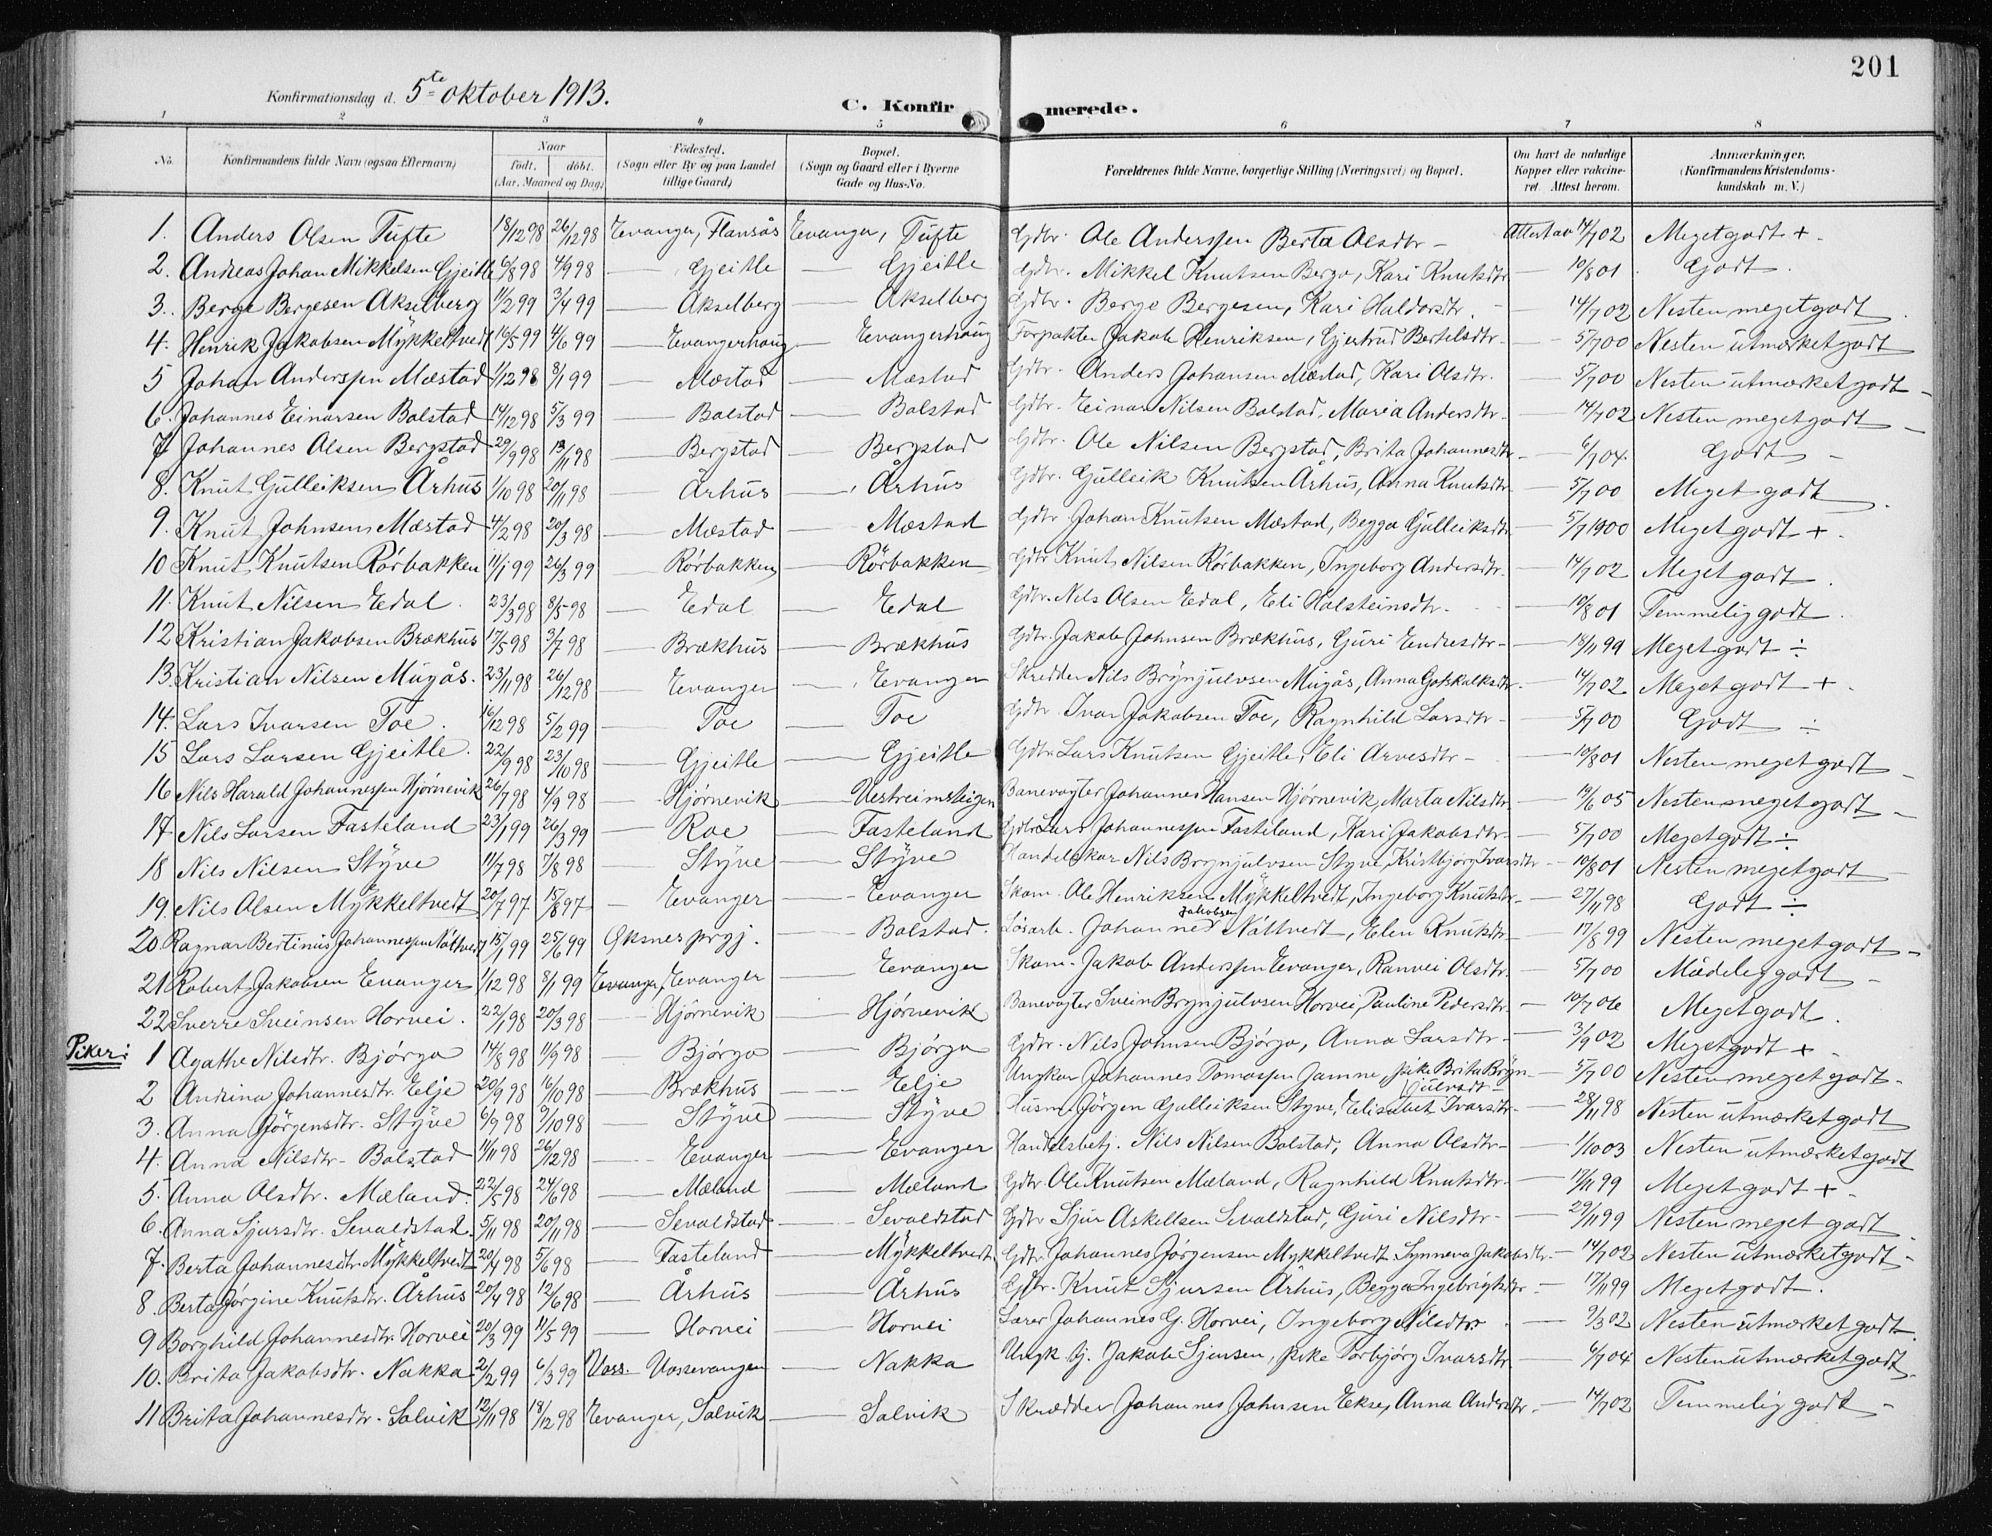 201
Konfirmationsdag d. 5te oktober 1913.
C. Konfirmerede.
1 2 3 4 5 6 7 8
No. Konfirmandens fulde Navn (ogsaa Efternavn) Naar født. døbt. (Aar, Maaned og Dag) Fødested. (Sogn eller By og paa Landet tillige Gaard) Bopæl. (Sogn og Gaard eller i Byerne Gade og Hus-No. Forældrenes fulde Navne, borgerlige Stilling (Næringsvei) og Bopæl. Om havt de naturlige Kopper eller vakcineret. Attest herom. Anmærkninger. (Konfirmandens Kristendomskundskab m. V.)
1. Anders Olsen Tufte 18/12 98 26/12 98 Evanger, Flansås Evanger, Tufte Gdbr. Ole Anderssen Berta Olsdtr - Attest av 14/7 02 Meget godt +
2. Andreas Johan Mikkelsen Gjeitle 6/8 98 4/9 98 — Gjeitle — Gjeitle Gdbr. Mikkel Knutsen Berge, Kari Knutsdtr - 10/8 01 Godt
3. Berge Bergesen Akselberg 1/2 99 3/4 99 — Akselberg — Akselberg Gdbr. Berge Bergesen, Kari Haldorsdtr. - 14/7 02 Nesten meget godt
4. Henrik Jakobsen Mykkeltvedt 16/5 99 4/6 99 — Evangerhaug — Evangerhaug Forpakter Jakob Henriksen, Gjertrud Bertelsdtr - 5/7 00 Nesten utmærket godt
5 Johan Anderssen Mæstad 1/12 98 8/1 99 — Mæstad — Mæstad Gdbr. Anders Johansen Mæstad, Kari Olsdtr. - 5/7 00 Nesten utmærket godt
6. Johannes Einarsen Bolstad 14/12 98 5/3 99 — Bolstad — Bolstad Gdbr. Einar Nilsen Bolstad, Maria Andersdtr - 14/7 02 Nesten meget godt
7 Johannes Olsen Bergstad 29/9 98 13/11 98 — Bergstad — Bergstad Gdbr. Ole Nilsen Bergstad, Brita Johannesdtr - 6/7 04. Godt
8. Knut Gulleiksen Århus 1/10 98 20/11 98 — Århus — Århus Gdbr. Gulleik Knutsen Århus, Anna Knutsdtr - 5/7 00 Meget godt
9. Knut Johnsen Mæstad 4/2 98 20/3 98 — Mæstad — Mæstad Gdbr Johan Knutsen Mæstad, Begga Gulleiksdtr - 5/7 1900 Meget godt +
10 Knut Knutsen Rörbakken 11/1 99 26/3 99 — Rörbakken — Rörbakken Gdbr Knut Nilsen Rörbakken, Ingeborg Andersdtr. - 14/7 02 Meget godt
11. Knut Nilsen Edal 23/3 98 8/5 98 — Edal — Edal Gdbr. Nils Olsen Edal, Eli Holsteinsdtr. - 10/8 01 Temmelig godt
12 Kristian Jakobsen Brækhus 17/5 98 3/7 98 — Brækhus — Brækhus Gdbr. Jakob Johnsen Brækhus, Guri Endresdtr - 18/11 99 Meget godt ÷
13. Kristian Nilsen Mugås. 23/11 98 26/12 98 — Evanger — Evanger Skredder Nils Brynjulvsen Mugås, Anna Gotskalksdtr. - 14/7 02 Meget godt +
14. Lars Ivarsen Toe. 16/12 98 5/2 99 — Toe — Toe Gdbr. Ivar Jakobsen Toe, Ragnhild Larsdtr - 5/7 00 Godt ÷
15 Lars Larsen Gjeitle 22/9 98 23/10 98 — Gjeitle — Gjeitle Gdbr Lars Knutsen Gjeitle, Eli Arvesdtr - 10/8 01 Nesten meget godt
16 Nils Harald Johannessen Hjørnevik 26/7 98 4/9 98 — Hjørnevik — Vestreimsteigen Banevogter Johannes Hansen Hjørnevik, Marta Nilsdtr - 19/6 05 Nesten meget godt
17 Nils Larsen Fasteland 23/1 99 26/3 99 — Roe — Fasteland Gdbr Lars Johannessen Fasteland, Kari Jakobsdtr - 5/7 00 Meget godt ÷
18 Nils Nilsen Styve 11/7 98 7/8 98 — Styve — Styve Handelskar Nils Brynjulvsen Styve, Kristbjørg Ivarsdtr - 10/8 01 Nesten meget godt
19. Nils Olsen Mykkeltvedt 20/7 97 15/8 97 — Evanger — Evanger Skom. Ole Henriksen Mykkeltvedt, Ingeborg Knutsdtr - 27/11 98 Godt ÷
20. Ragnar Bertinius Johannessen Nåttvedt 15/1 99 25/6 99 Øksnes prgj. Bolstad. Lösarb. Johannes Jakobsen Nåttvedt, Elen Knutsdtr - 17/8 99 Nesten meget godt
21 Robert Jakobsen Evanger 1/12 98 8/1 99 Evanger, Evanger Evanger Skom. Jakob Anderssen Evanger, Ranvei Olsdtr. - 5/7 00 Mådelig godt
22 Sverre Sveinsen Horvei. 22/1 98 20/3 98 — Hjörnevik — Hjörnevik Banevogter Svein Brynjulvsen Horvei, Pauline Pedersdtr - 10/7 06 Meget godt
Piker:
1 Agathe Nilsdtr. Bjørgo 14/8 98 11/9 98 — Bjørgo — Bjørgo Gdbr. Nils Johnsen Bjørgo, Anna Larsdtr - 3/9 02 Meget godt +
2 Andrina Johannesdtr. Eelje 20/9 98 16/10 98 — Brækhus — Eelje Ungkar Johannes Tomassen Jamne, pike Brita Brynjulvsdt - 5/7 00 Nesten meget godt
3. Anna Jörgensdtr. Styve 6/9 98 9/10 98 — Styve — Styve Husm. Jörgen Gulleiksen Styve, Elisabet Ivarsdtr. - 28/11 98 Nesten utmærket godt
4. Anna Nilsdtr. Bolstad 1/11 98 26/12 98 — Evanger — Evanger Handelsbetj. Nils Nilsen Bolstad, Anna Olsdtr - 1/10 03 Nesten utmærket godt
5. Anna Olsdtr. Mæland. 22/5 98 24/6 98 — Mæland — Mæland Gdbr Ole Knutsen Mæland, Ragnhild Knutsdtr - 17/11 99 Meget godt +
6. Anna Sjursdtr. Sevaldstad. 5/11 98 20/11 98 — Sevaldstad — Sevaldstad Gdbr Sjur Askellsen Sevaldstad, Guri Nilsdtr - 29/11 99 Nesten meget godt
7. Berta Johannesdtr. Mykkeltvedt 20/4 98 5/6 98 — Fasteland — Mykkeltvedt Gdbr Johannes Jørgensen Mykkeltvedt Synneva Jakobsdtr - 14/7 02 Nesten utmærket godt
8 Berta Jørgine Knutsdtr. Århus 20/4 98 12/6 98 — Århus — Århus Gdbr. Knut Sjursen Århus, Begga Ingebrigtsdtr - 17/11 99 Meget godt
9 Borghild Johannesdtr. Horvei 20/3 99 11/5 99 — Horvei — Horvei Lærer Johannes G. Horvei, Ingeborg Nilsdtr - 9/3 02 Nesten utmærket godt
10. Brita Jakobsdtr. Nakka 2/2 99 6/3 99 Voss. Vossevangen — Nakka Ungk. Jakob Sjursen, pike Torbjörg Ivarsdtr - 6/7 04 Nesten utmærket godt
11 Brita Johannesdtr. Solvik 12/11 98 18/12 98 Evanger, Solvik — Solvik Skrædder Johannes Johnsen Ekse, Anna Andersdtr. - 14/7 02 Temmelig godt